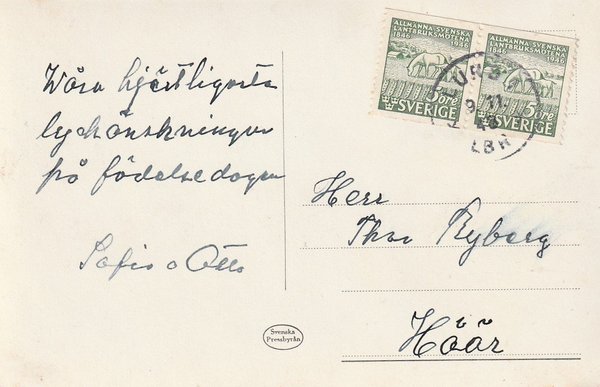 ALLMÄNNA SVENSKA
LANTBRUKSMÖTENA
1846 1946
5 öre
SVERIGE
ALLMÄNNA SVENSKA
LANTBRUKSMÖTENA
1846 1946
5 öre
SVERIGE
9.11.
LBR
Våra hjärtligaste
lyckönskningar
på födelsedagen
Sofia o Otto
Herr
Thor Ryberg
Höör
Svenska
Pressbyrån